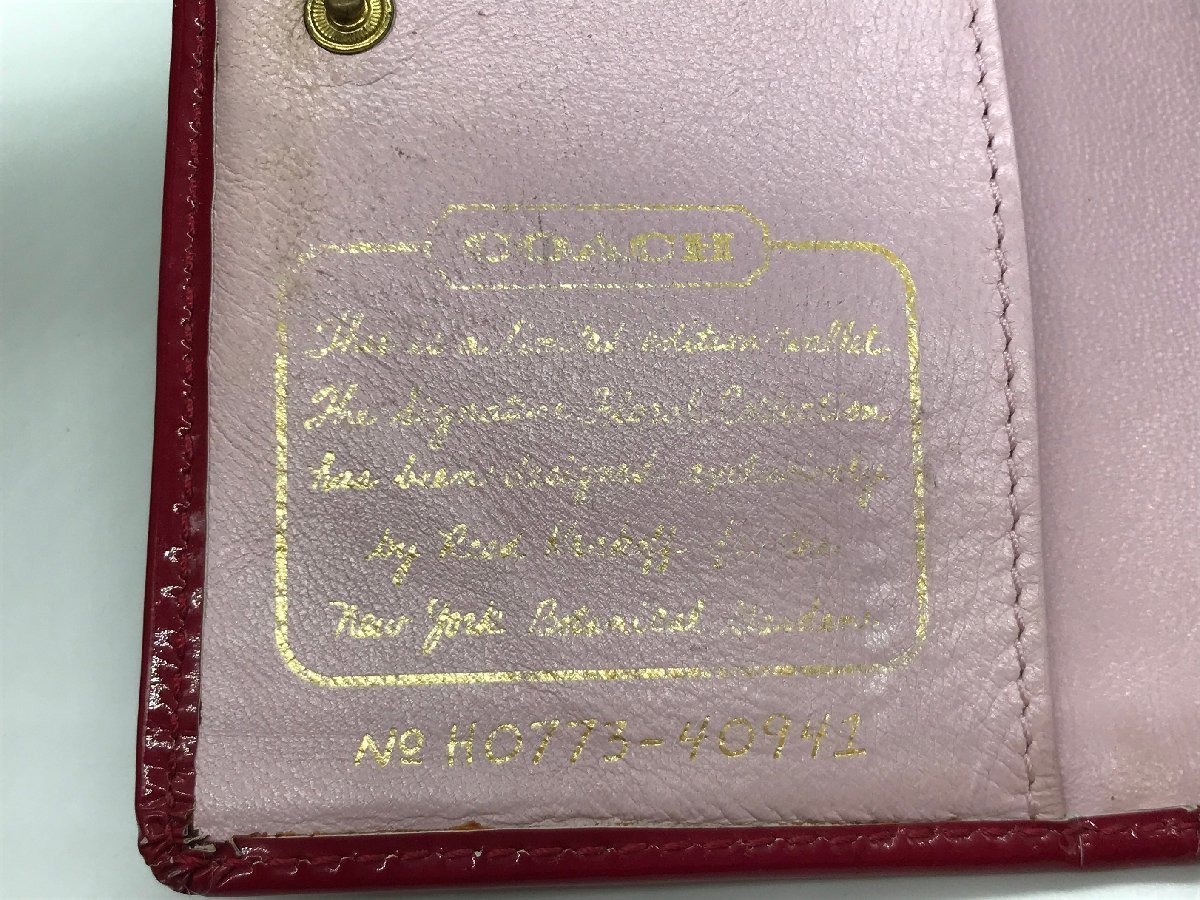 COACH
This is a limited edition wallet.
The Signature Floral Collection
has been designed exclusively
by Reed Krakoff for the
New York Botanical Gardens.
No H0773-40941